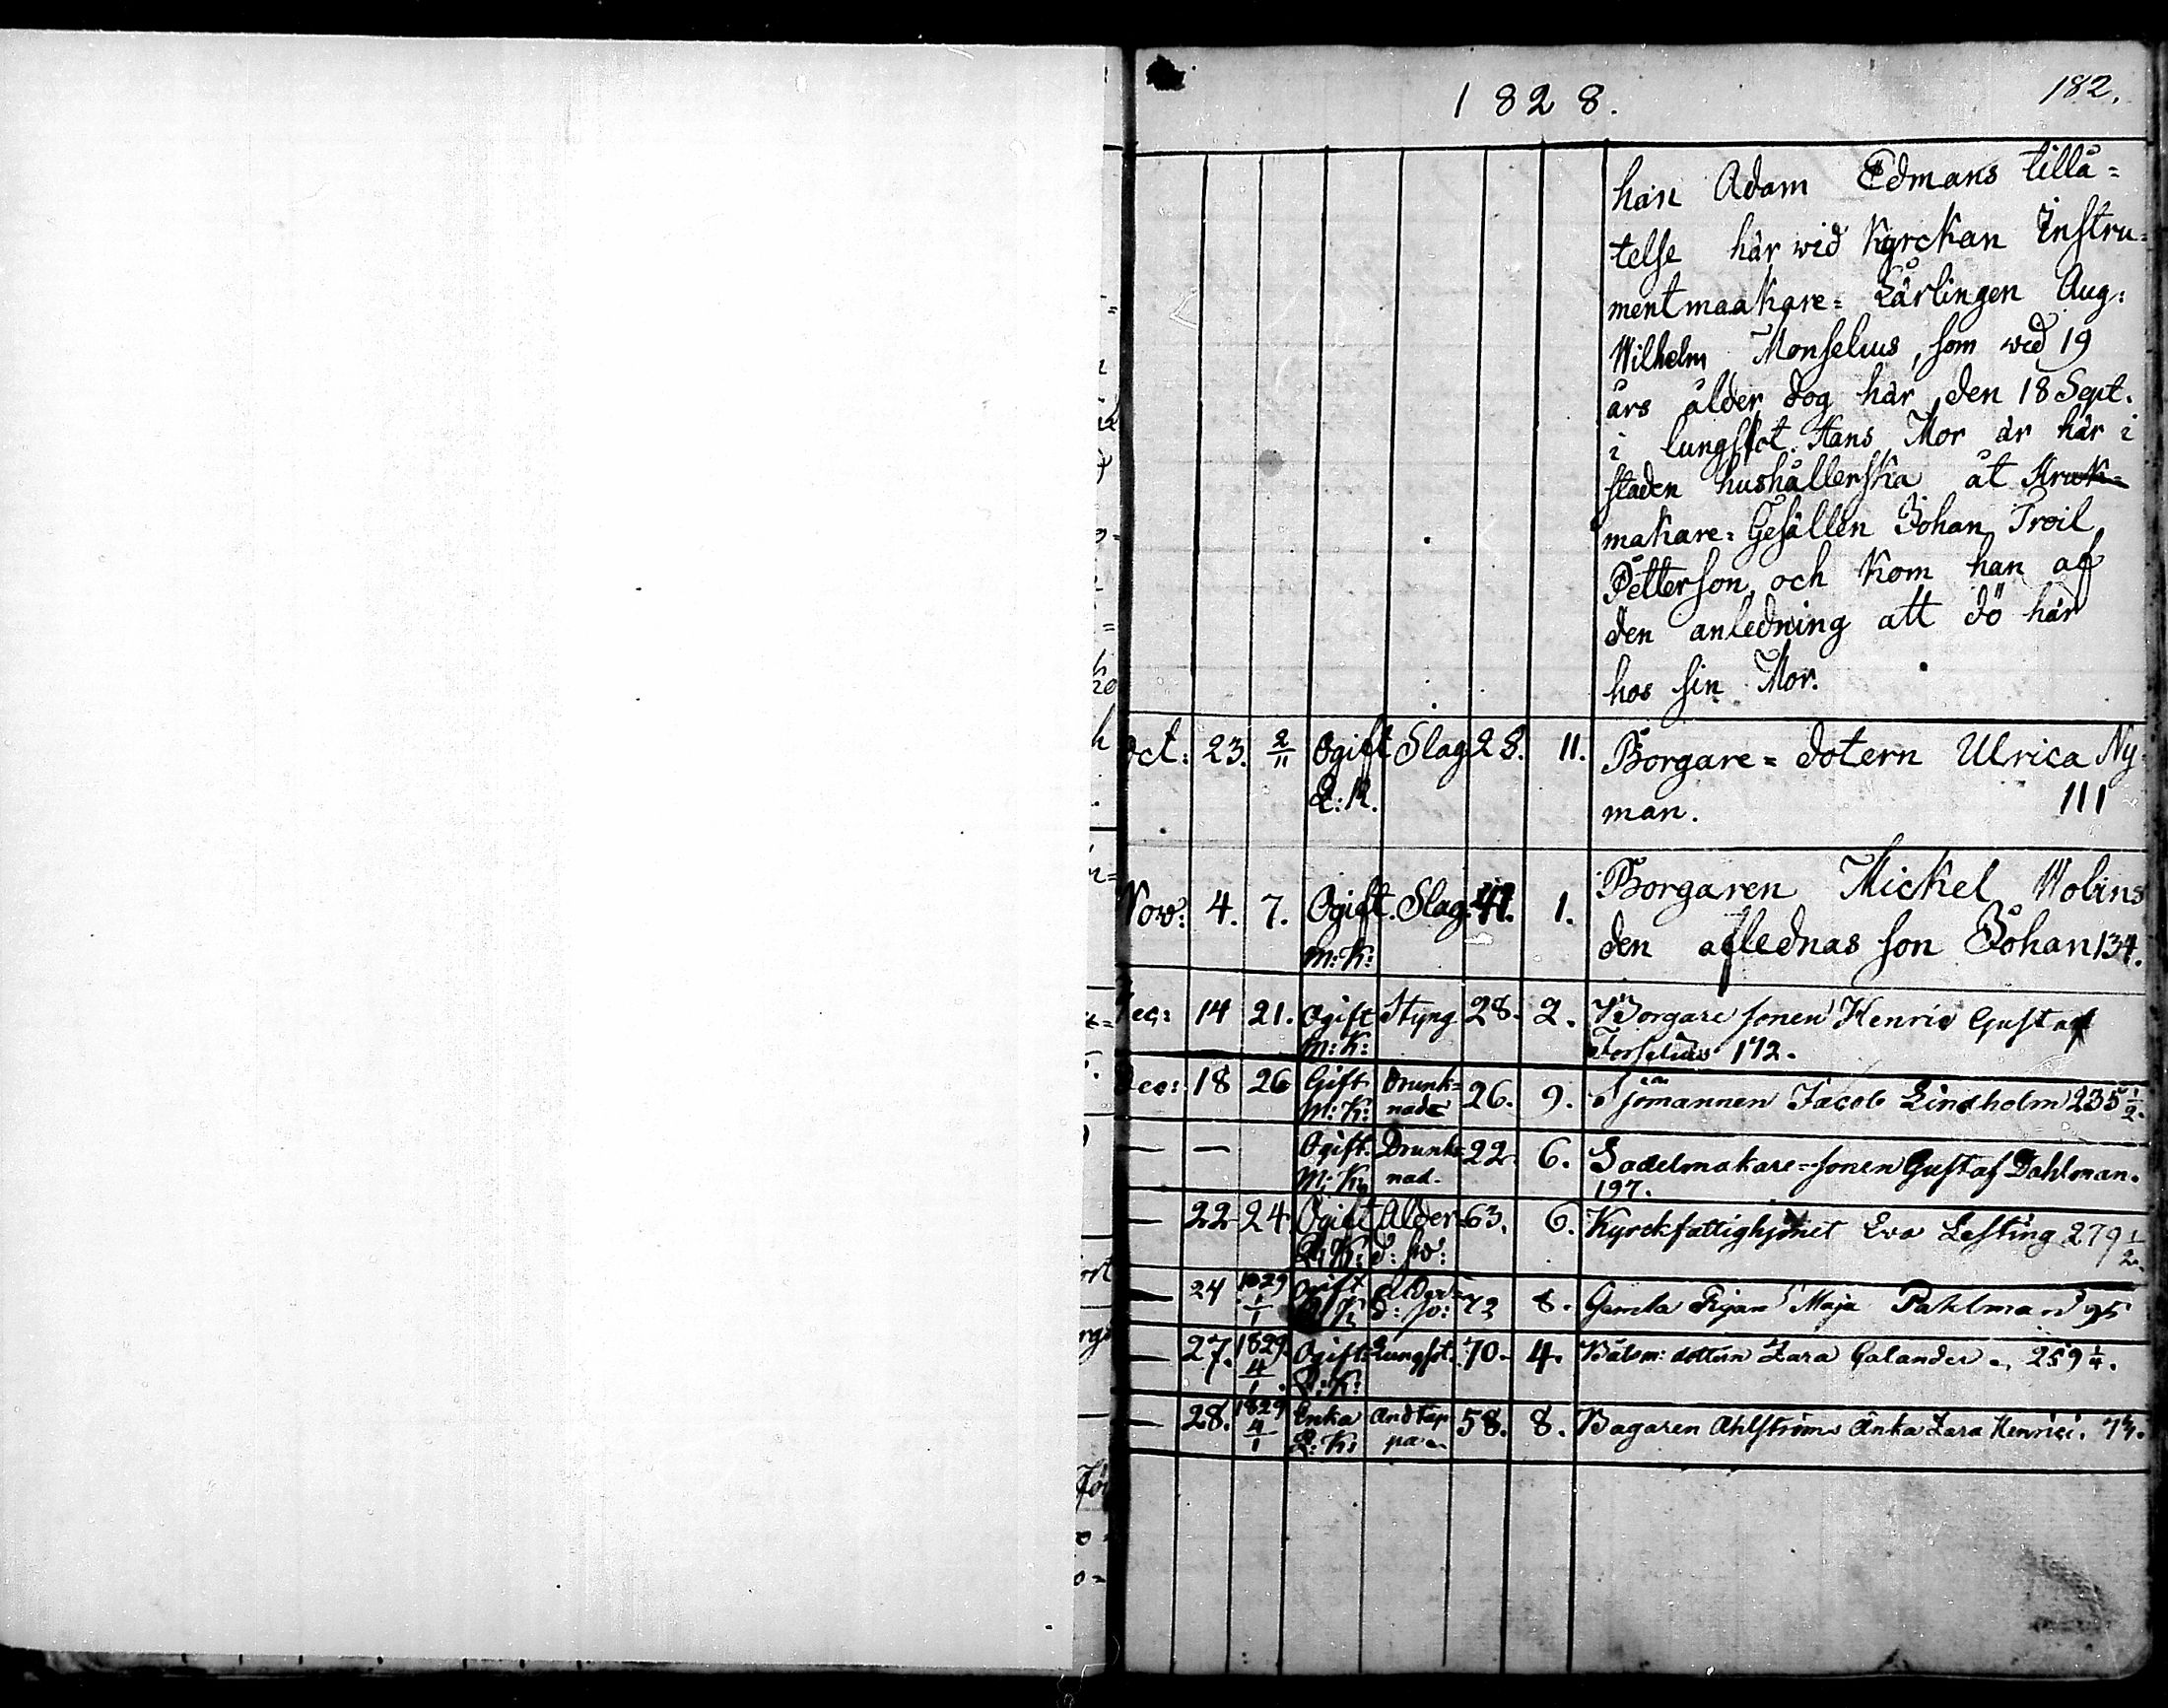 1828.
182.
han Adam Edmans tillå=
telse här wid Kyrckan Instru=
mentmaakare=Lärlingen Aug:
Wilhelm Monselius, som wid 19
års ålder dog här den 18 Sept.
i lungsot. Hans Mor är här i
staden hushållerska åt Kruk=
makare=Gesällen Johan Troil
Petterson, och kom han af
den anledning att dö här
hos sin Mor.
Oct: 23. 2/11 Ogift Slag 28. 11. Borgare=dotern Ulrica Ny=
Q:K. man. 111
Nov: 4. 7. Ogift. Slag. 41. 1. Borgaren Mickel Wolins
m:K: den aflednas son Johan 134.
Dec: 14 21. Ogift Styng 28. 2. Borgare sonen Henric Gustaf
m:K: Forselius 172.
Dec: 18 26 Gift Drunk= 26. 9. Sjömannen Jacob Lindholm 235 1/2.
M:K: nade
— — Ogift. Drunk= 22. 6. Sadelmakare=sonen Gustaf Dahlman.
M:K: nad. 197.
— 22 24. Ogift Ålder= 63. 6. Kyrckfattighjonet Eva Lesting 279 1/2.
Q:K: d:sw:
— 24 1829 1/1 Ogift Ålder= 72 8. Gamla Pigan Maja Pahlman 95
Q:K d:sw:
— 27. 1829 4/1 Ogift Lungsot. 70. 4. Båtsm: dottern Zara Galander 259 1/4.
Q:K:
— 28. 1829 4/1 Enka Andtäp 58. 8. Bagaren Ahlströms Änka Zara Henrici. 73.
Q:K: pa